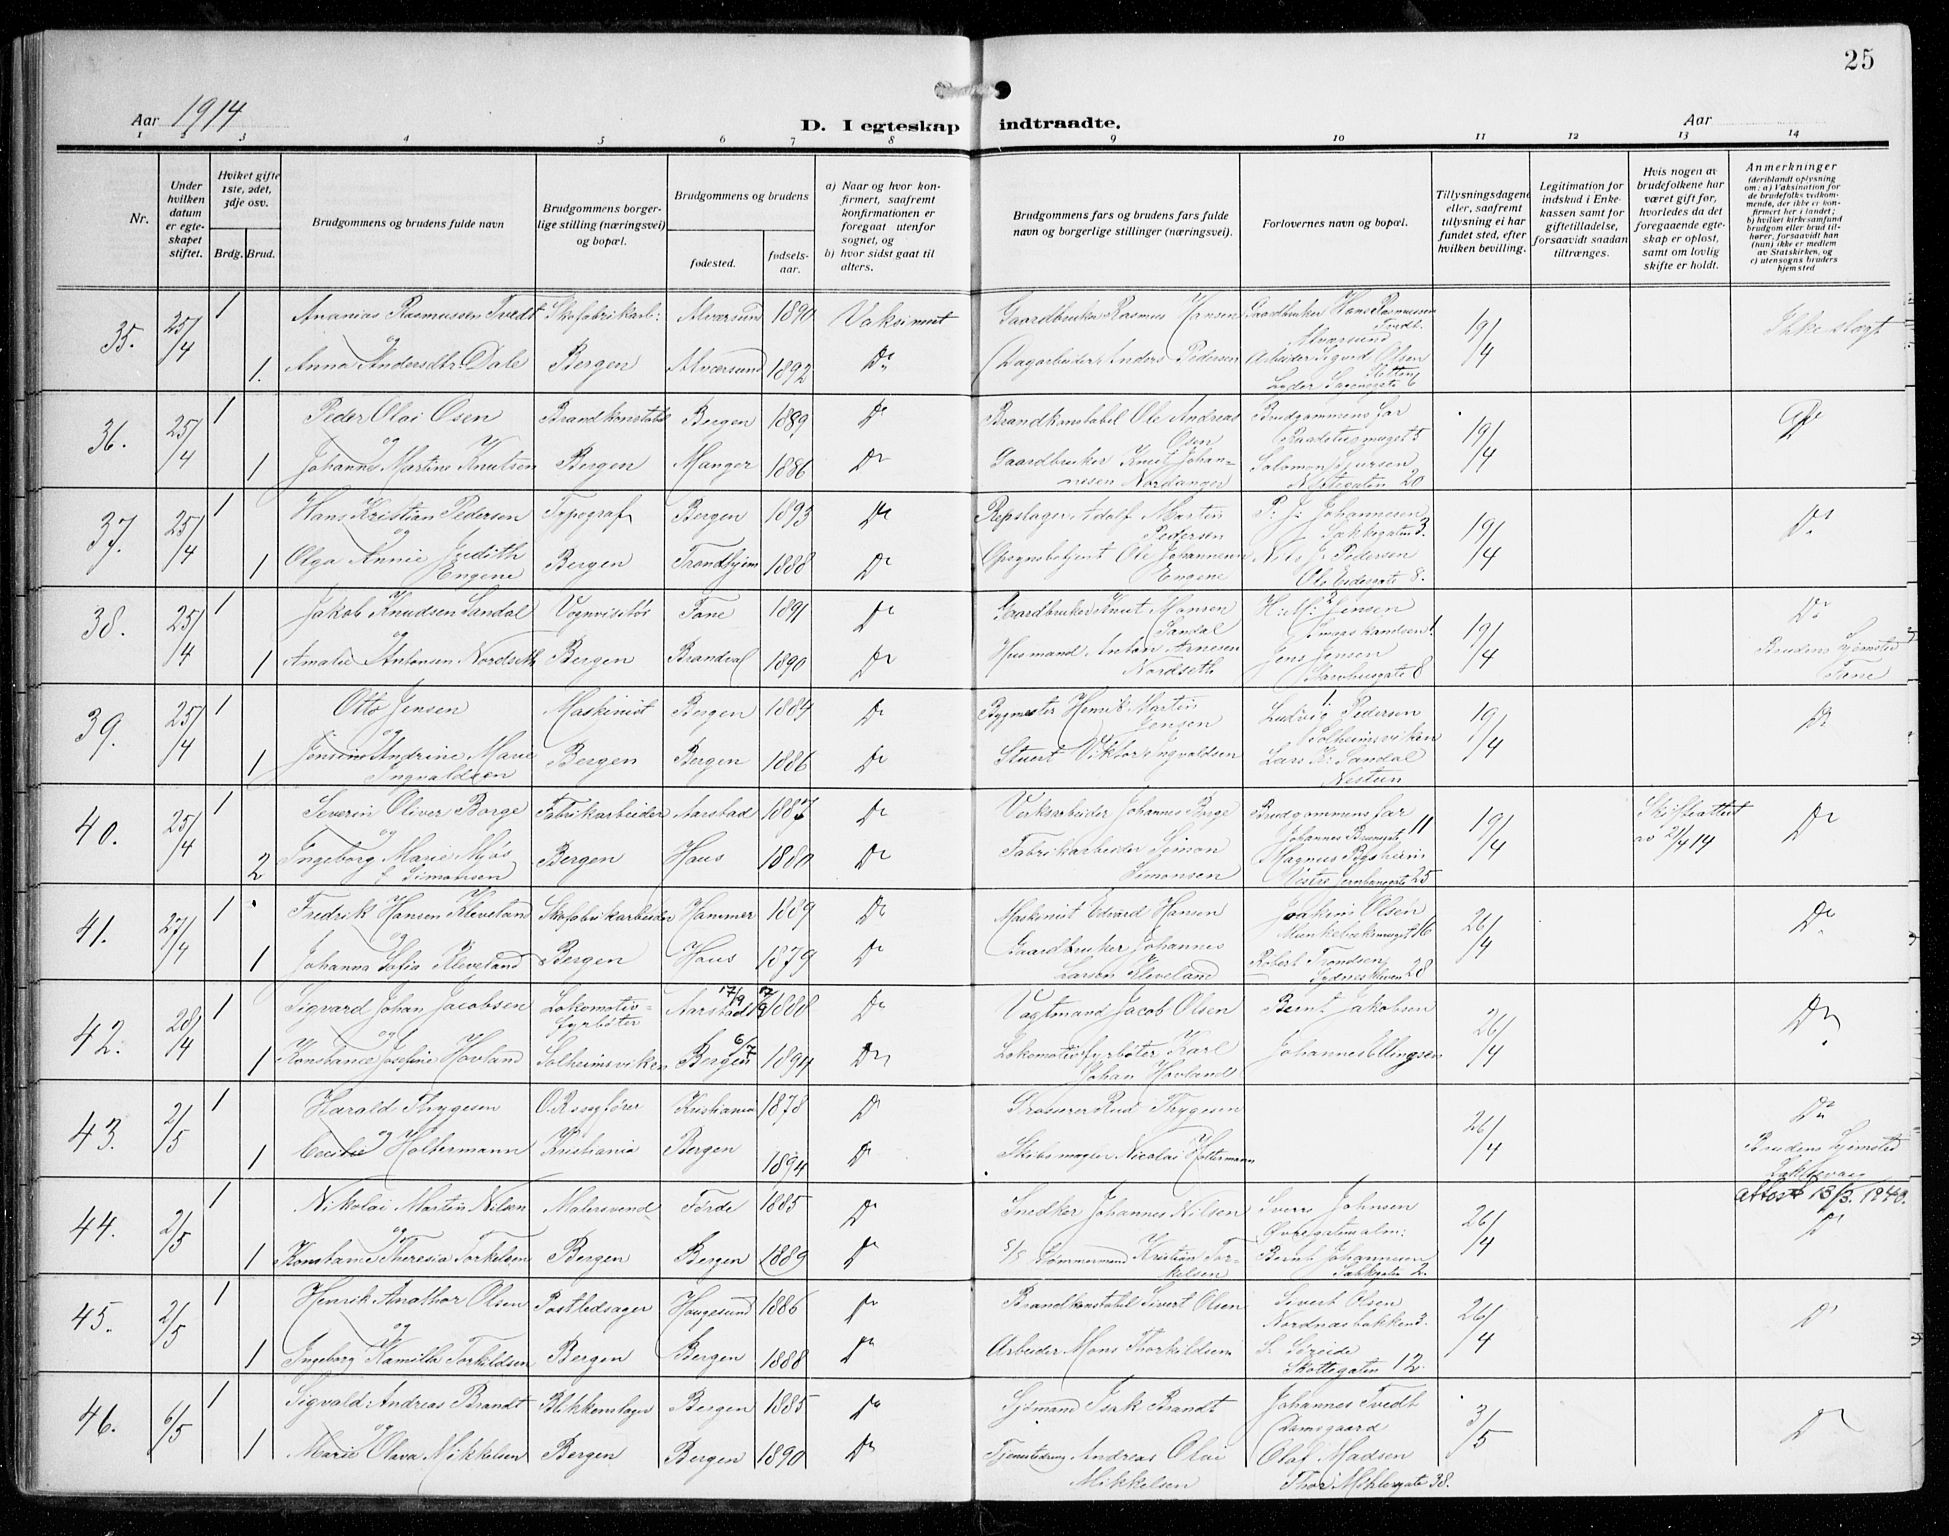 25
Aar 1914
D. I egteskap indtraadte.
Aar
1 2 3 4 5 6 7 8 9 10 11 12 13 14
Nr.
Under hvilken datum er egteskapet stiftet.
Hvilket gifte 1ste, 2det, 3dje osv.
Brdg. Brud.
Brudgommens og brudens fulde navn
Brudgommens borgerlige stilling (næringsvei) og bopæl.
Brudgommens og brudens
fødested.
fødselsaar.
a) Naar og hvor konfirmert, saafremt konfirmationen er foregaat utenfor sognet, og
b) hvor sidst gaat til alters.
Brudgommens fars og brudens fars fulde navn og borgerlige stillinger (næringsvei).
Forlovernes navn og bopæl.
Tillysningsdagene eller, saafremt tillysning ei har fundet sted, efter hvilken bevilling.
Legitimation for indskud i Enkekassen samt for giftetilladelse, forsaavidt saadan tiltrænges.
Hvis nogen av brudefolkene har været gift før, hvorledes da det foregaaende egteskap er opløst, samt om lovlig skifte er holdt.
Anmerkninger (deriblandt oplysning om: a) Vaksination for de brudefolks vedkommende, der ikke er konfirmert her i landet; b) hvilket kirkesamfund brudgom eller brud tilhører, forsaavidt han (hun) ikke er medlem av Statskirken, og c) utensogns bruders hjemsted
35. 25/4 1 Ananias Rasmussen Tvedt Skofabrikarb: Alversund 1890 Vaksinert Gaardbruker Rasmus Hansen Gaardbruker Hans Rasmussen Tvedt Alversund 19/4 Ikke slegt
og
1. Anna Andersdtr. Dale Bergen Alversund 1892 Do Dagarbeider Anders Pedersen Arbeider Sigurd Olsen Lyder Sagensgate 6
36. 25/4 1 Peder Olai Osen Brandkonstabel Bergen 1889 Do Brandkonstabel Ole Andreas Osen Brudgommens far 19/4 Do
og
1 Johanne Martine Knutsen Bergen Manger 1886 Do Gaardbruker Knut Johannesen Nordanger Salomon Sjursen 20
37. 25/4 1 Hans Kristian Pedersen Typograf Bergen 1893 Do Repslager Adolf Martin Pedersen P. J. Johannesen Sækkegaten 3. 19/4 Do
og
1 Olga Annie Judith Engene Bergen Trondhjem 1888 Do Opsynsbetjent Ole Johannesen Engene Nils J. Pedersen 8.
38. 25/4 1 Jakob Knudsen Sandal Vognvisitør Fane 1891 Do Gaardbruker Knut Monsen Sandal Jensen 19/4 Do
og
1 Amalie Antonsen Nordseth Bergen Brandval 1890 Do Husmand Anton Arnesen Nordseth Jens Jensen 8 Brudens hjemsted Fane
39. 25/4 1 Otto Jensen Maskinist Bergen 1884 Do Bygmester Henrik Martin Jensen Ludvig Pedersen Solheimsviken 19/4 Do
og
1 Jensine Andrine Marie Ingvaldsen Bergen Bergen 1886 Do Stuert Viktor Ingvaldsen Lars K. Sandal Nestun
40. 25/4 1 Severin Oliver Borge Fabrikarbeider Aarstad 1887 Do Verksarbeider Johannes Borge Brudgommens far Johannes Brunsgate 11 19/4 Skifteattest av 2/4 14 Do
og
2 Ingeborg Marie Mjøs f. Simonsen Bergen Haus 1880 Do Fabrikarbeider Simon Simonsen Magnus 25
41. 27/4 1 Fredrik Hansen Kleveland Skofabrikarbeider Hammer 1889 Do Maskinist Edvard Hansen Joakim Olsen 16 26/4 Do
og
1 Johanna Sofia Kleveland Bergen Haus 1879 Do Gaardbruker Johannes Larsen Kleveland Robert Trondsen Sydneskleven 28
42. 28/4 1 Sigvard Johan Jacobsen Lokomotivfyrbøter Aarstad 17/9 17/9 1888 Do Vagtmand Jacob Olsen Bernt Jakobsen 26/4 Do
og
1 Konstance Josefine Hovland Solheimsviken Bergen 6/7 1894 Do Lokomotivfyrbøter Karl Johan Hovland Johannes Ellingsen
43. 2/5 1 Harald Thygesen O.R.sagfører Kristiania 1878 Do Grosserer Thygesen 26/4 Do
og
1 Cecilie Holtermann Kristiania Bergen 1894 Do Skibsmægler Nicolai Holtermann Brudens hjemsted
44. 2/5 1 Nikolai Martin Nilsen Malersvend Førde 1885 Do Snedker Johannes Nilsen Sverre Johnsen Øvregatsalm: 26/4 attest 13/3. 1940. Do
og
1 Konstanse Theresia Torkelsen Bergen Bergen 1889 Do Tømmermand Kristian Torkelsen Bernt Johannesen 2.
45. 2/5 1 Henrik Anathor Olsen Postledsager Haugesund 1886 Do Brandkonstabel Sivert Olsen Sivert Olsen Nordnæsbakken 3. 26/4 Do
og
1 Ingeborg Kamilla Torkildsen Bergen Bergen 1888 Do Arbeider Mons Thorkildsen Skottegaten 12.
46. 6/5 1 Sigvald Andreas Brandt Blikkenslager Bergen 1885 Do Sjømand Isak Brandt Johannes Tvedt Damsgaard 3/5 Do
og
1 Marie Olava Mikkelsen Bergen Bergen 1890 Do Andreas Olai Mikkelsen Olaf Madsen 38.